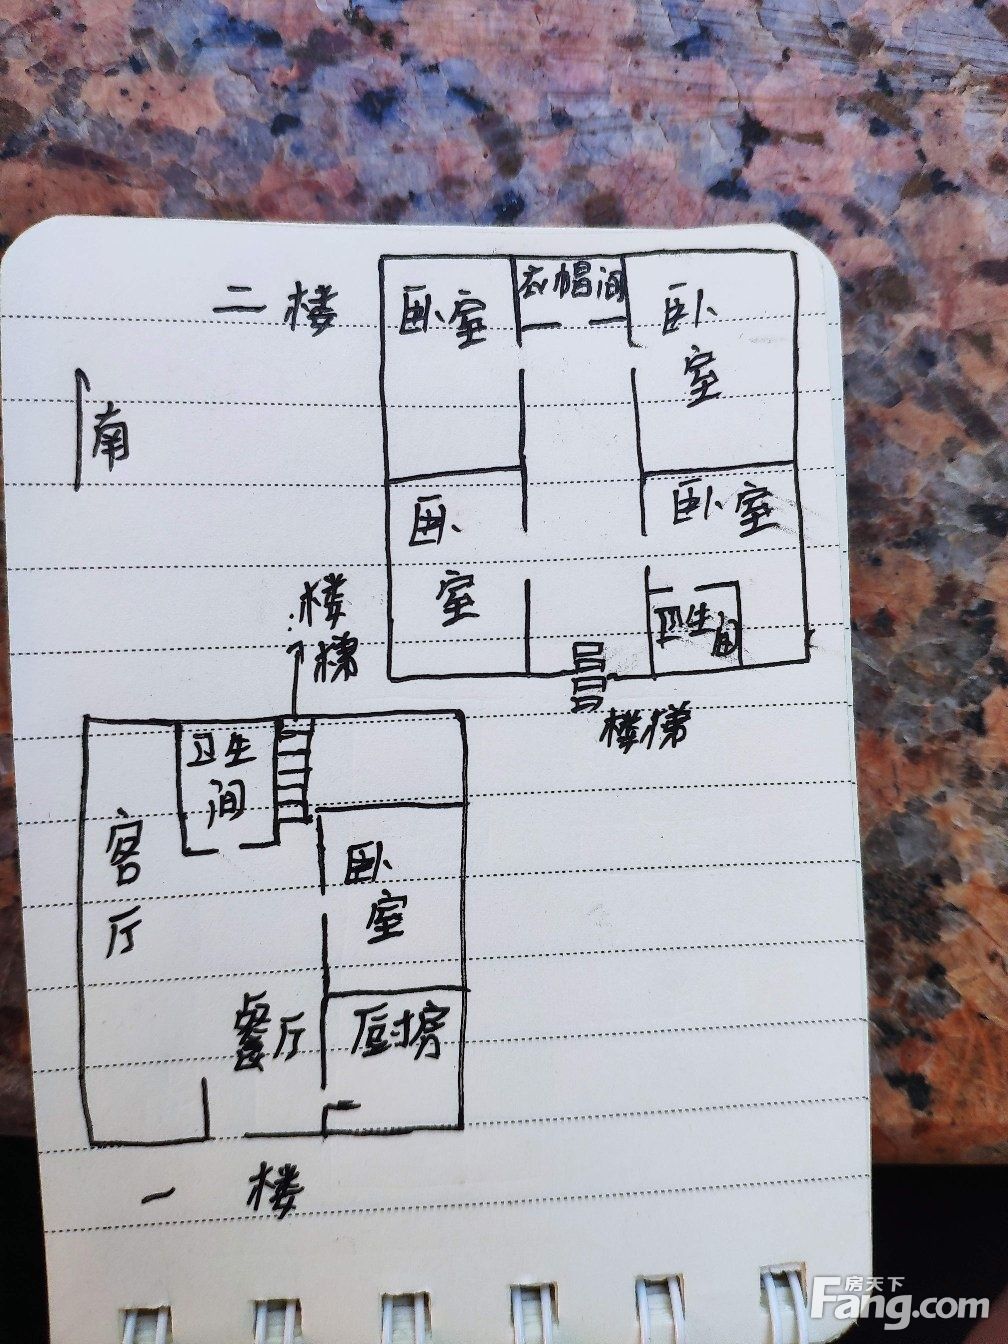 二楼
卧室
衣帽间
卧
室
南
卧
室
卧室
卫生间
楼
梯
楼梯
卫生
间
客
厅
卧
室
餐厅
厨房
一楼
房天下
Fang.com